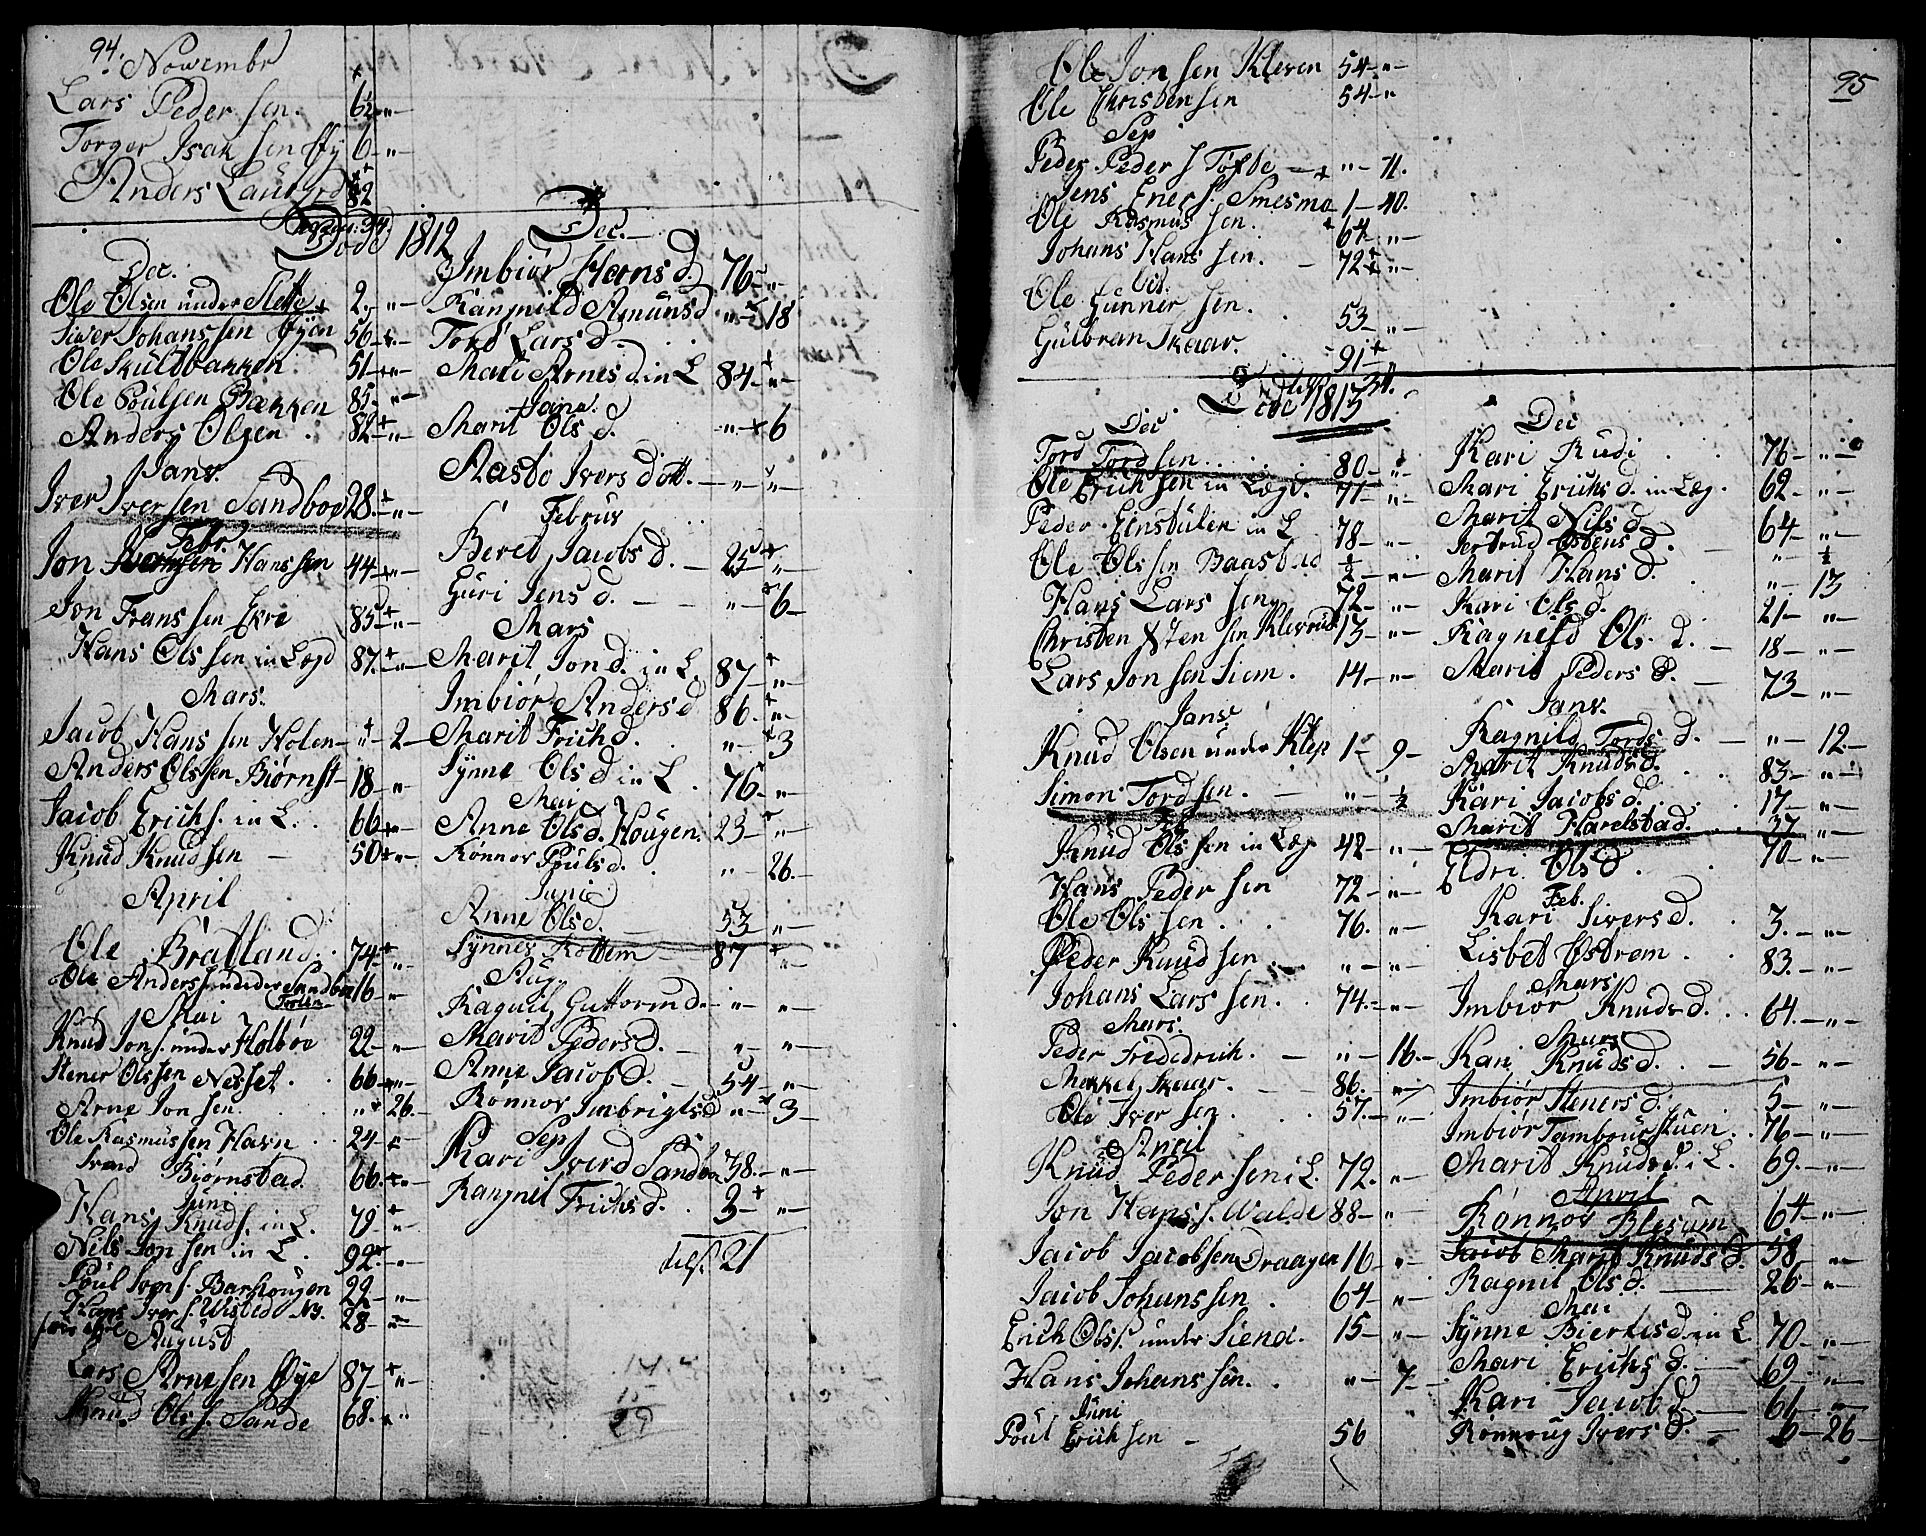 94.
Novembr
Lars Pedersen. 62 "
Torger Isaksen Øy 6 "
Anders Laur 82
Døde 1812
Dec.
Ole Olsen under Slette 2 "
Siver Johanssen Øyen 56 "
Ole Skuldbakken 51 "
Ole Poulsen Bækken 85 "
Anders Olsen 82 "
Janv.
Iver Iversen Sandboe 28 "
Febr.
Jon Hanssen 44 "
Jon Franssen Ekre 85 "
Hans Olssen in Lægd 87 "
Mars.
Jacob Hanssen Holen " 2
Anders Olssen Biørnst 18 "
Jacob Erichs. in L. 66 "
Knud Knudsen 50 "
April
Ole Bratland 74 "
Ole Anders. under Sandboe 16 "
Mai
Knud Jons. under Holboe 22 "
Stener Olssen Nesset 66 "
Arne Jonsen " 26
Ole Rasmussen Havn 24 "
Svend Biørnstad 66 "
Juni
Hans Knuds. in L. 79 "
Nils Jonsen in L. 92 "
Poul Svens. Barhougen 22 "
Hans Ivers. Wisted 28 "
August
Lars Arnesen Øye 87 "
Knud Ols. Sande 68 "
Dec.
Imbiør Hernsd. 76 "
Rangnild Amunsd " 18
Tore Larsd.
Mari Arnesd. in L 84 "
Janv.
Marit Olsd. " 6
Aasto Iversdott. " "
Februv
Beret Jacobsd. 25 "
Guri Jensd. " 6
Mars
Marit Jond. in L. 87 "
Imbiør Andersd 86 "
Marit Frichd. " 3
Synne Olsd in L. 76 "
Mai
Anne Olsd. Hougen 23 "
Rønnov Poulsd. " 26
Junie
Anne Olsd. 53 "
Synnev Kottem 87 "
Aug.
Ragnil Guttormd. " "
Marit Pedersd. " "
Anne Jacobd. 54 "
Rønnov Imbrigtsd " 3
Sept
Kari Iversd Sandbo 38 "
Rangnil Frichsd. 3 "
21
95
Ole Jonsen Kleven 54 "
Ole Christensen 54 "
Sep
Peder Peders Tofte " 11.
Jens Eners. Smesmo 1 40.
Ole Rasmussen. 64 "
Johans Hanssen. 72 "
Oct.
Ole Gunnersen. 53 "
Gulbran Skaar. 91
34.
Døde 1813
Dec
Tord Tordsen 80 "
Ole Erichsen in Lægd. 71 "
Peder Einstulen in L 78 "
Ole Olssen Baastad ½ "
Hans Larsen 72 "
Christen Stensen Klevrud 13 "
Lars Jonsen Siem. 14 "
Janv
Knud Olsen under Klep 1 9
Simon Tordsen. " ½
Knud Olssen in Læg 42 "
Hans Pedersen 72 "
Ole Olssen 76 "
Peder Knudsen " "
Johans Larssen. 74 "
Mars.
Peder Fredrich. " 16
Mekkel Skaar. 86 "
Ole Iversen 57 "
April
Knud Pedersen i L. 72 "
Jon Hanss. Walde 88 "
Jacob Jacobsen Draagen 16 "
Jacob Johanssen 64 "
Erich Ols. under Siem. 15 "
Hans Johanssen. " 7
Juni
Poul Erichsen 56
Dec
Kari Rudi 76 "
Mari Erichsd. in Læg. 62 "
Marit Nilsd. 64 "
Jertrud Ostensd. " ½
Marit Hansd. " 13
Kari Olsd. 21 "
Ragnild Ols.d. 18 "
Marit Pedersd. 73 "
Janv.
Ragnild Tordsd. " 12
Marit Knudsd. 83 "
Kari Jacobsd. 17 "
Marit Harelstad. 37 "
Eldri Olsd. 70 "
Feb.
Kari Siversd. 3 "
Lisbet Østrem 83 "
Mars
Imbiør Knudsd. 64 "
Kari Knudsd. 56 "
Imbiør Stenersd. 5 "
Imbiør Tambourstuen 76 "
Marit Knudsd. i L. 69 "
April
Rønnov Blesum 64 "
Marit Knudsd. 58 "
Ragnil Olsd. 26 "
Mai
Synne Biertesd. in L 70 "
Mari Erichsd. 69 "
Kari Jacobd. 61 "
Rønnoug Iversd. 6 26